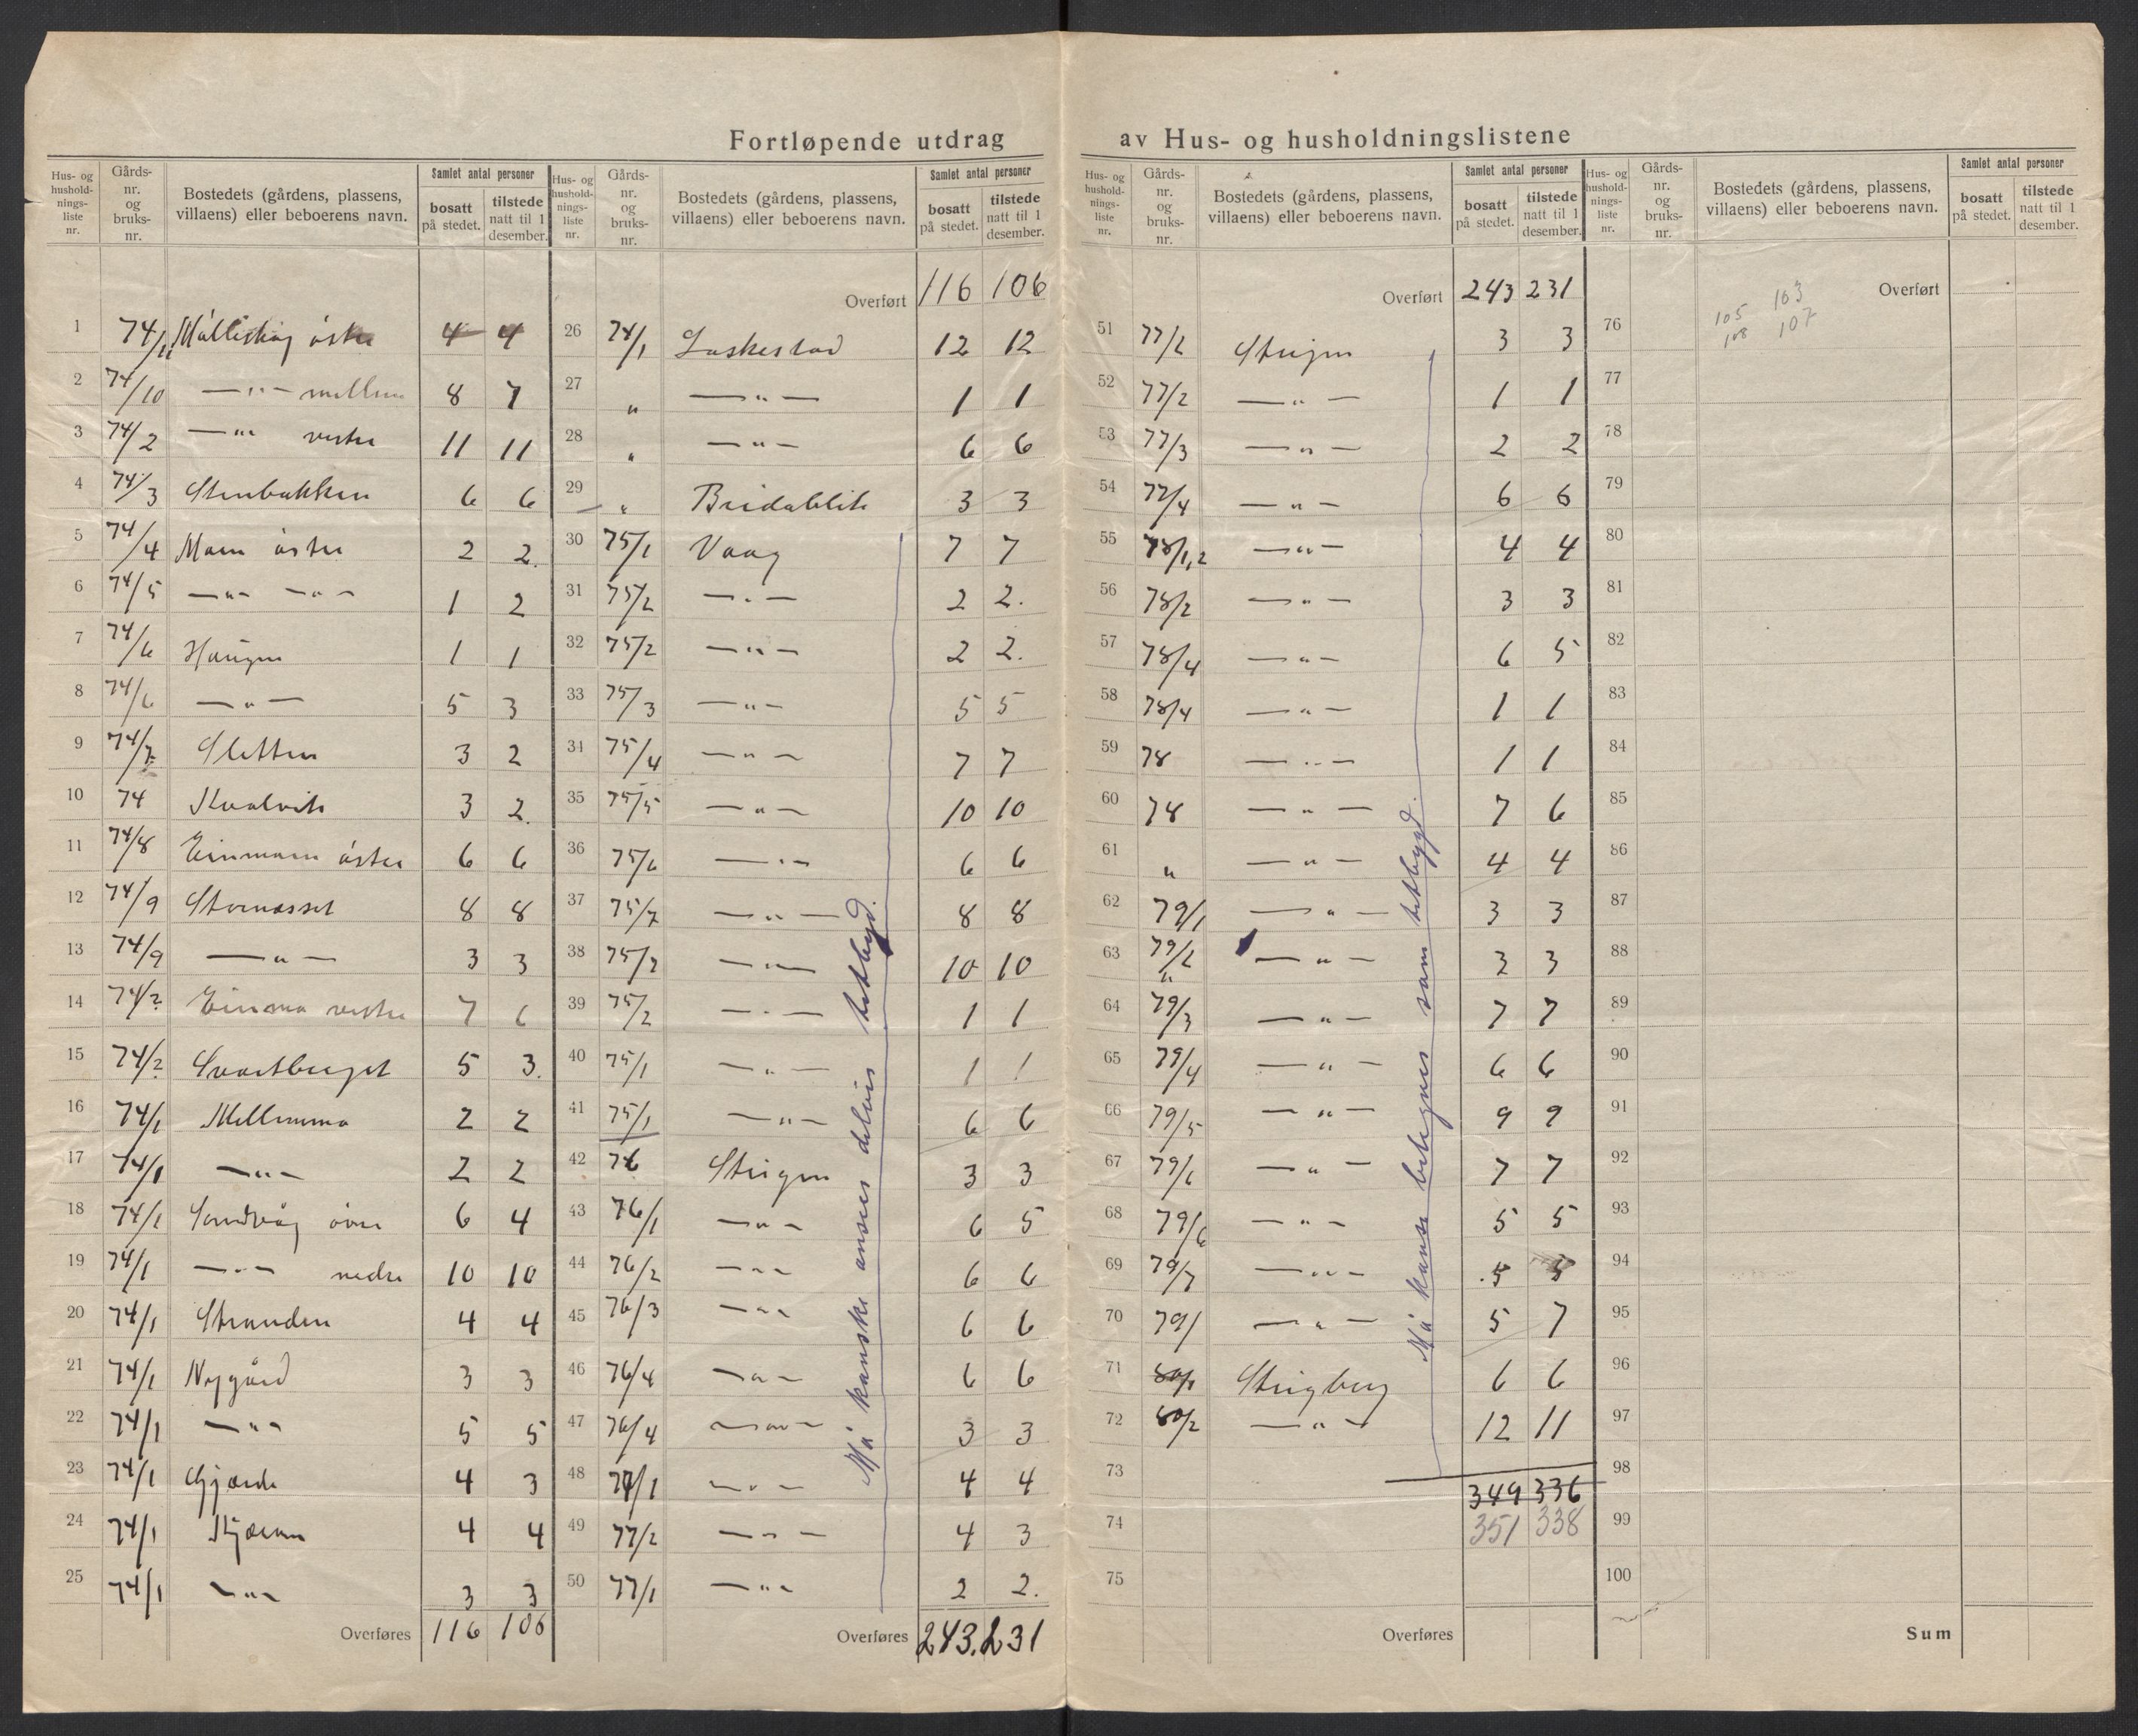 Fortløpende utdrag av Hus- og husholdningslistene
Hus- og husholdningsliste nr. Gårds- nr. og bruks- nr. Bostedets (gårdens, plassens, villaens) eller beboerens navn. Samlet antal personer bosatt på stedet. tilstede natt til 1 desember.
1 74/11 østre 4 4
2 74/10 —"— mellem 8 7
3 74/2 —"— vestre 11 11
4 74/3 Stenbakken 6 6
5 74/4 Moen østre 2 2.
6 74/5 —"— —"— 1 2
7 74/6 Haugen 1 1
8 74/6 —"— 5 3
9 74/7 Sletten 3 2
10 74 Kvalvik 3 2.
11 74/8 Einmoen østre 6 6
12 74/9 Stornesset 8 8
13 74/9 —"— 3 3
14 74/2 Einmo vestre 7 6
15 74/2 Svartberget 5 3.
16 74/1 Mellemmo 2 2
17 74/1 —"— 2 2
18 74/1 Sandvåg øvre 6 4
19 74/1 —"— nedre 10 10
20 74/1 Stranden 4 4
21 74/1 Nygård 3 3
22 74/1 —"— 5 5
23 74/1 Gjærde 4 3
24 74/1 4 4
25 74/1 —"— 3 3
Overføres 116 106
Hus- og husholdningsliste nr. Gårds- nr. og bruks- nr. Bostedets (gårdens, plassens, villaens) eller beboerens navn. Samlet antal personer bosatt på stedet. tilstede natt til 1 desember.
Overført 116 106
26 74/1 Laskestad 12 12
27 " —"— 1 1
28 " —"— 6 6
29 " Breidablik 3 3
30 75/1 Vaag 7 7
31 75/2 —"— 2 2.
32 75/2 —"— 2 2.
33 75/3 —"— 5 5
34 75/4 —"— 7 7
35 75/5 —"— 10 10
36 75/6 —"— 6 6
37 75/7 —"— 8 8
38 75/2 —"— 10 10
39 75/2 —"— 1 1
40 75/1 —"— 1 1
41 75/1 —"— 6 6
42 76 Steigen 3 3
43 76/1 —"— 6 5
44 76/2 —"— 6 6
45 76/3 —"— 6 6
46 76/4 —"— 6 6
47 76/4 —"— 3 3
48 77/1 —"— 4 4
49 77/2 —"— 4 3
50 77/1 —"— 2 2.
Overføres 243. 231
Må kanskje ansees delvis tettbygd.
Hus- og husholdningsliste nr. Gårds- nr. og bruks- nr. Bostedets (gårdens, plassens, villaens) eller beboerens navn. Samlet antal personer bosatt på stedet. tilstede natt til 1 desember.
Overført 243 231
51 77/2 Steigen 3 3
52 77/2 —"— 1 1
53 77/3 —"— 2 2
54 77/4 —"— 6 6
55 78/1,2 —"— 4 4
56 78/2 —"— 3 3
57 78/4 —"— 6 5
58 78/4 —"— 1 1
59 78 —"— 1 1
60 78 —"— 7 6
61 " —"— 4 4
62 79/1 —"— 3 3
63 79/2 —"— 3 3
64 79/3 —"— 7 7
65 79/4 —"— 6 6
66 79/5 —"— 9 9
67 79/6 —"— 7 7
68 79/6 —"— 5 5
69 79/7 —"— 5 5
70 79/ —"— 5 7
71 80/1 Steigberg 6 6
72 80/2 —"— 12 11
73 349 336
74 351 338
75
Overføres
Må kanse betegnes som tettbygd.
Hus- og husholdningsliste nr. Gårds- nr. og bruks- nr. Bostedets (gårdens, plassens, villaens) eller beboerens navn. Samlet antal personer bosatt på stedet. tilstede natt til 1 desember.
Overført
105 103
108 107
76
77
78
79
80
81
82
83
84
85
86
87
88
89
90
91
92
93
94
95
96
97
98
99
100
Sum